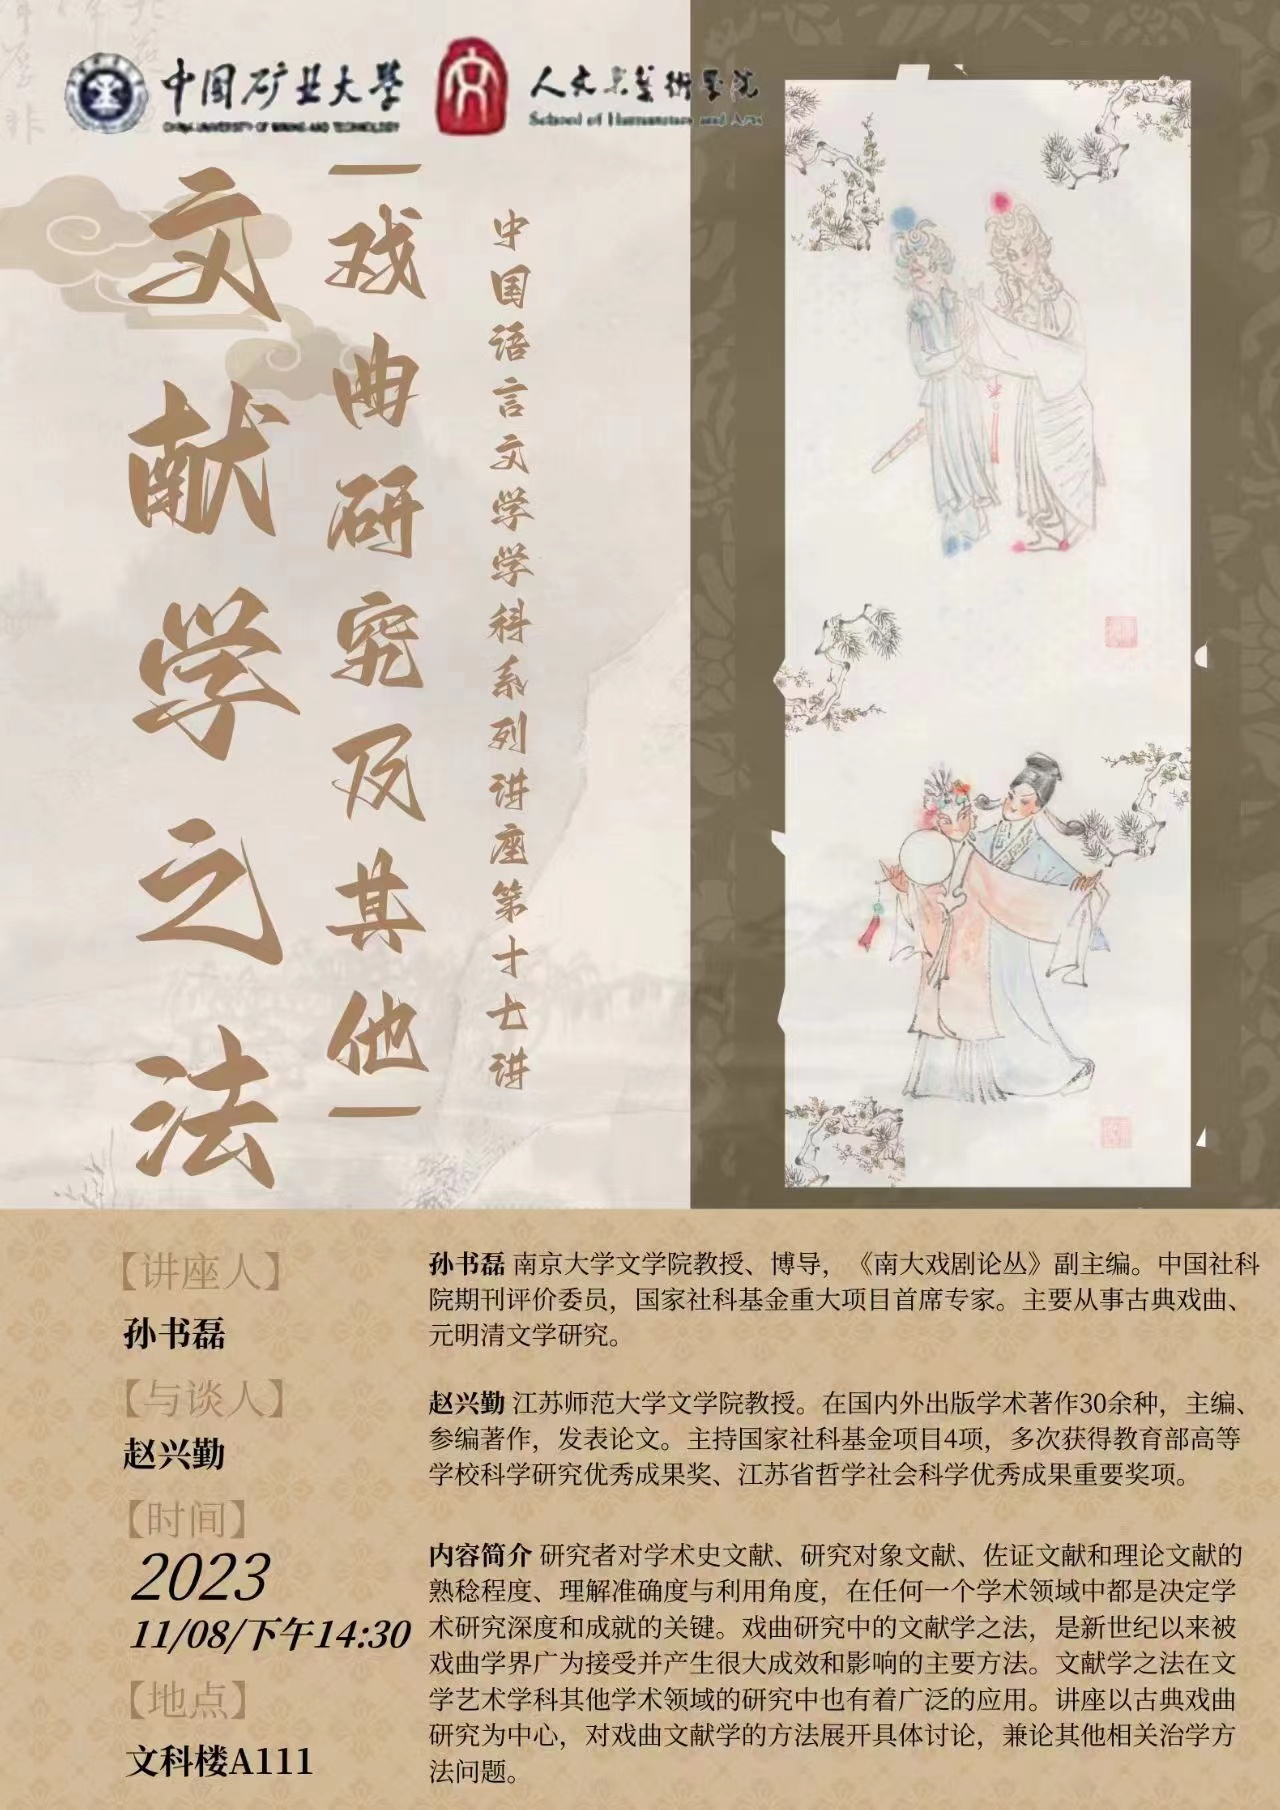 中国矿业大学
CHINA UNIVERSITY OF MINING AND TECHNOLOGY
人文与艺术学院
School of Humanities and Arts
中国语言文学学科系列讲座第十七讲
|戏曲研究及其他|
文献学之法
【讲座人】
孙书磊
【与谈人】
赵兴勤
【时间】
2023
11/08/下午14:30
【地点】
文科楼A111
孙书磊 南京大学文学院教授、博导，《南大戏剧论丛》副主编。中国社科
院期刊评价委员，国家社科基金重大项目首席专家。主要从事古典戏曲、
元明清文学研究。
赵兴勤 江苏师范大学文学院教授。在国内外出版学术著作30余种，主编、
参编著作，发表论文。主持国家社科基金项目4项，多次获得教育部高等
学校科学研究优秀成果奖、江苏省哲学社会科学优秀成果重要奖项。
内容简介 研究者对学术史文献、研究对象文献、佐证文献和理论文献的
熟稔程度、理解准确度与利用角度，在任何一个学术领域中都是决定学
术研究深度和成就的关键。戏曲研究中的文献学之法，是新世纪以来被
戏曲学界广为接受并产生很大成效和影响的主要方法。文献学之法在文
学艺术学科其他学术领域的研究中也有着广泛的应用。讲座以古典戏曲
研究为中心，对戏曲文献学的方法展开具体讨论，兼论其他相关治学方
法问题。